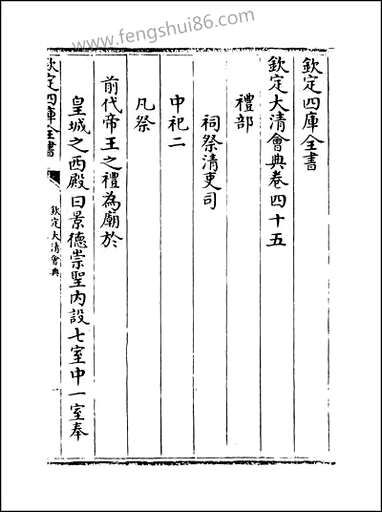 www.fengshui86.com
欽定四庫全書
欽定大清會典卷四十五
禮部
祠祭清吏司
中祀二
凡祭
前代帝王之禮為廟於
皇城之西殿曰景德崇聖內設七室中一室奉
欽定四庫全書
欽定大清會典
一